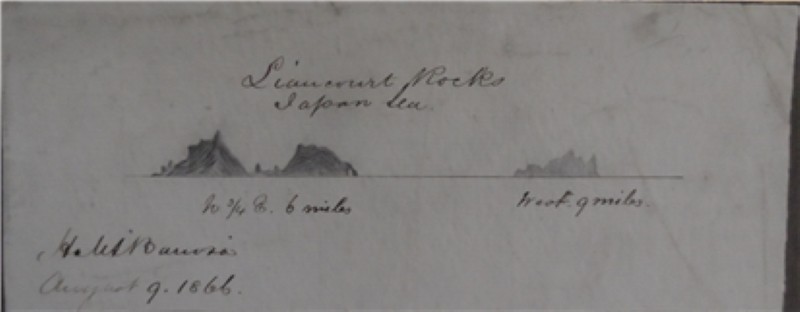 Liancourt Rocks
Japan Sea.
N ¾ E. 6 miles
West. 9 miles.
August 9. 1866.